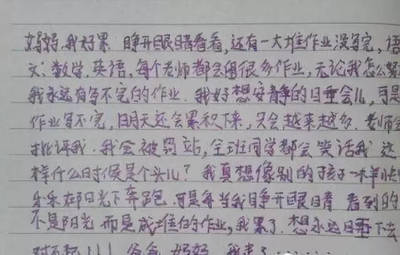 妈妈,我好累 睁开眼睛看看,还有一大堆作业没写完,语
文,数学,英语,每个老师都会留很多作业,无论我怎么努
我永远有写不完的作业.我好想安静的睡会儿,可是
作业写不完,明天还会累积下来,只会越来越多.老师会
批评我.我会被罚站,全班同学都会笑话我 这
样什么时候是个头儿?我真想像别的孩子一样快
乐乐在阳光下奔跑.可是每当我睁开眼睛 看到的
不是阳光 而是成堆的作业,我累了.想永远睡下去
对不起!!!爸爸 妈妈 我走了......